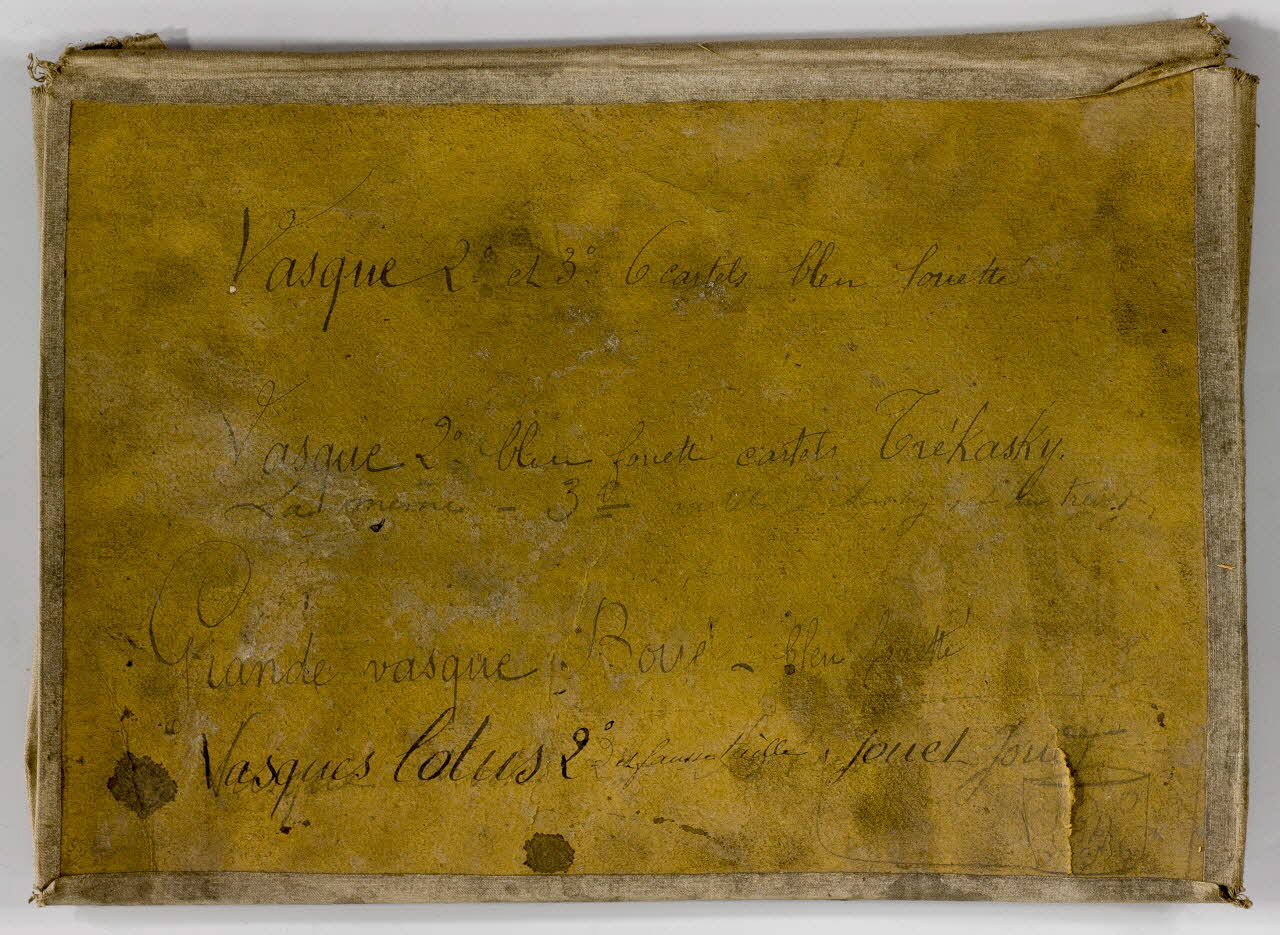 Vasque 2° et 3° 6 cartels bleu fouetté
Vasque 2° bleu fouetté cartels Trékasky.
La même - 3e
Grande vasque Boué - bleu fouetté
Vasques lotus 2° Jouet